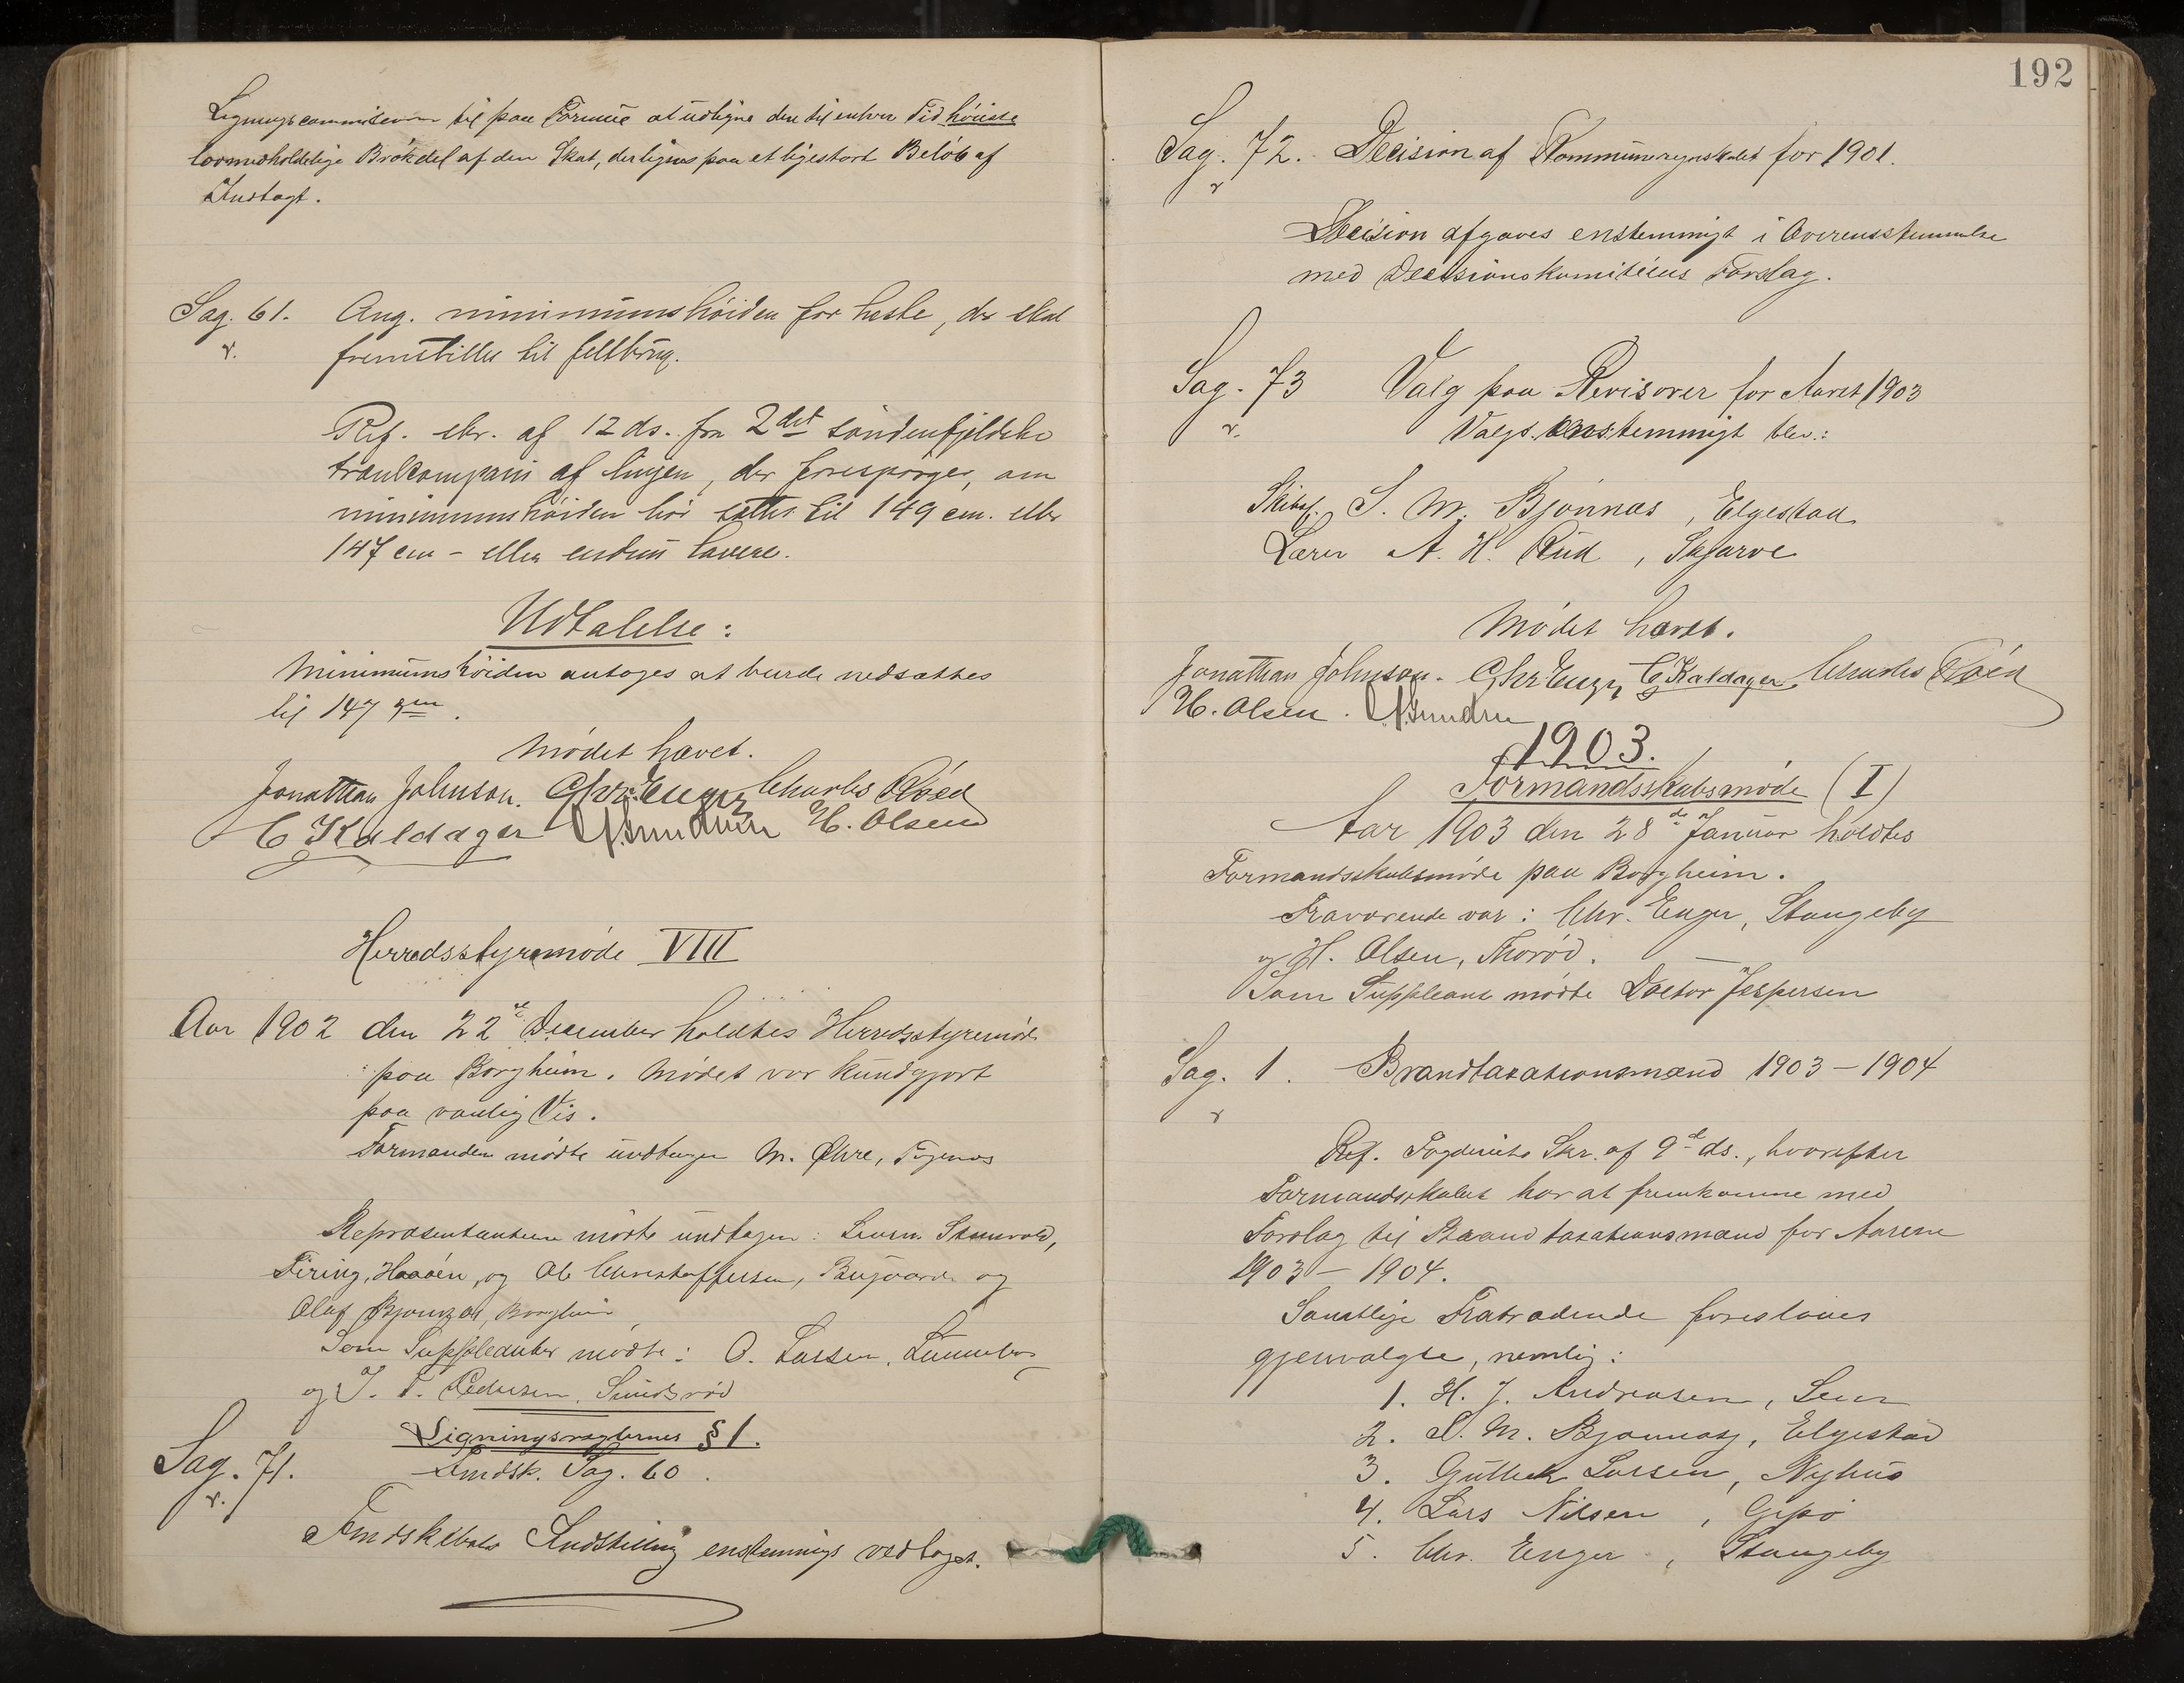 Ligningscommissionen til paa Formue at udligne den til enhver Tid høieste
lovmedholdelige Brøkdel af den Skat, der lignes paa et ligestort Beløb af
Indtægt.
Sag. 61. Ang. minimumshöiden for heste, der skal
v. fremstilles til feltbrug.
Ref. skr. af 12 ds. fra 2det söndenfjeldske
trainkompani af linjen, der forespörger, om
minimumshöiden bör sættes til 149 cm. eller
147 cm - eller endnu lavere.
Udtalelse:
Minimumshöiden antages at burde nedsættes
til 147 cm.
Mødet hævet.
Jonathan Johnson. Chr. Enger Charles Röed
C Kaldager H. Olsen
Herredsstyremøde VIII
Aar 1902 den 22de December holdtes Herredsstyremøde
paa Borgheim. Mødet var kundgjort
paa vanlig Vis.
Formændene mødte undtagen M. Øhre,
Repræsentanterne mødte undtagen:
Firing, og Ole Christoffersen, og
Olaf Bjønnes, Borgheim
Som Suppleanter mødte: O. Larsen,
og J. T. Pedersen, Sundsrød
Ligningsreglernes § 1.
Sag. 71. Fmdsk. Sag. 60.
v.
Fmdskabets Indstilling enstemmigt vedtaget.
192
Sag. 72. Decision af Kommuneregnskabet for 1901.
v.
Decision afgaves enstemmigt i Overensstemmelse
med Decisionskomitéens Forslag.
Sag. 73 Valg paa Revisorer for Aaret 1903
v. Valgt enstemmigt blev:
Skibsf. S. M. Bjönnæs, Elgestad
Lærer A. H. Rud, Skjærve
Mødet hævet.
Jonathan Johnson. Chr Enger C Kaldager Charles Röed
H. Olsen.
1903.
Formandsskabsmøde (I)
Aar 1903 den 28de Januar holdtes
Formandsskabsmøde paa Borgheim.
Fraværende var: Chr. Enger, Stangeby
og H. Olsen, Thorød.
Som Suppleant mødte Doctor Jespersen
Sag. 1. Brandtaxationsmænd 1903-1904
v
Ref. Fogderiets Skr. af 9de ds., hvorefter
Formandsskabet har at fremkomme med
Forslag til Brandtaxationsmænd for Aarene
1903 - 1904.
Samtlige Fratrædende foreslaaes
gjenvalgte, nemlig:
1. H. J. Andreasen, Sem
2. S. M. Bjønnæs, Elgestad
3. Gulbek Larsen, Nyhus
4. Lars Nilsen, Gipø
5. Chr. Enger, Stangeby